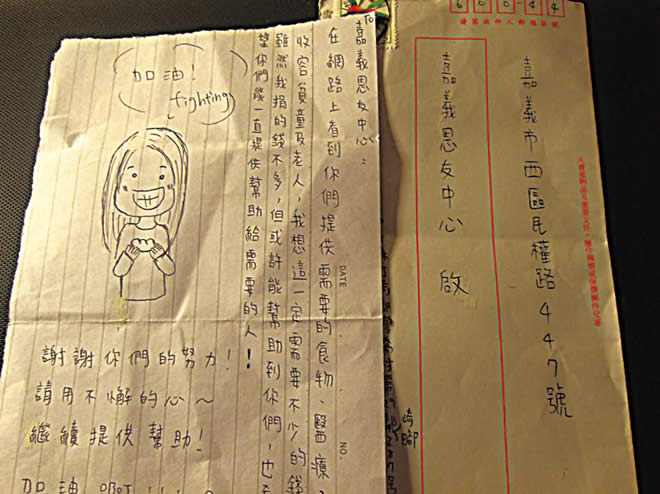 To
嘉義恩友中心：
在網路上看到你們提供需要的食物、醫療、
收容貧童及老人，我想這一定需要不少的錢
雖然我捐的錢不多，但或許能幫助到你們，也希
望你們能一直提供幫助給需要的人！
DATE
NO.
加油！
fighting
謝謝你們的努力！
請用不懈的心～
繼續提供幫助！
加油
600-44
嘉義市西區民權路447號
嘉義恩友中心 啟